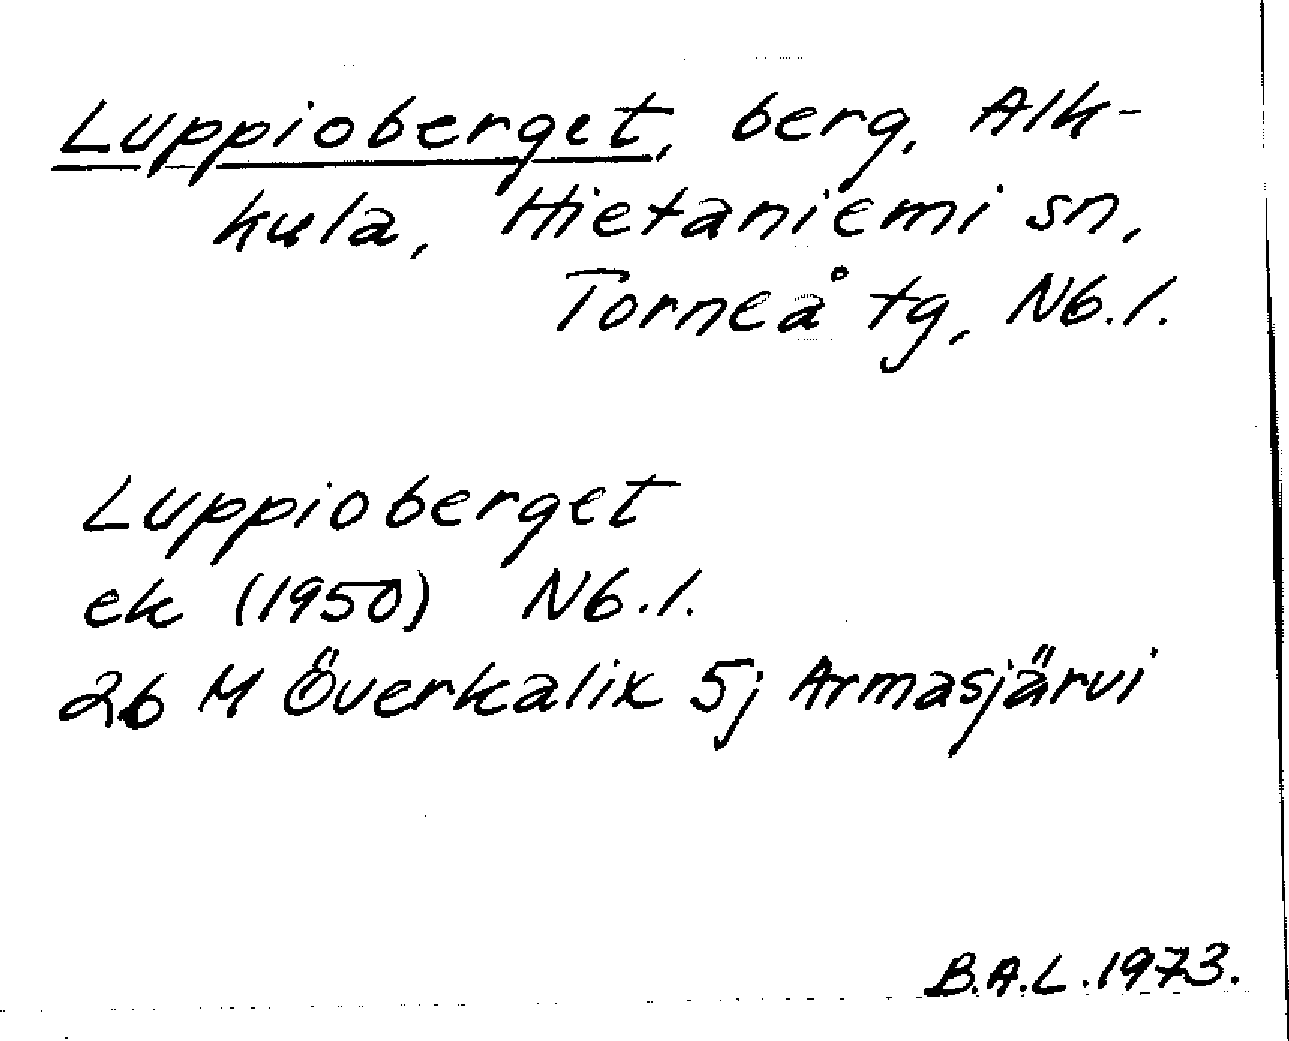 Luppioberget, berg, Alk-
kula, Hietaniemi sn,
Torneå tg, Nb.l.
Luppioberget
ek (1950) Nb.l.
26 M Överkalix 5j Armasjärvi
B.A.L. 1973.